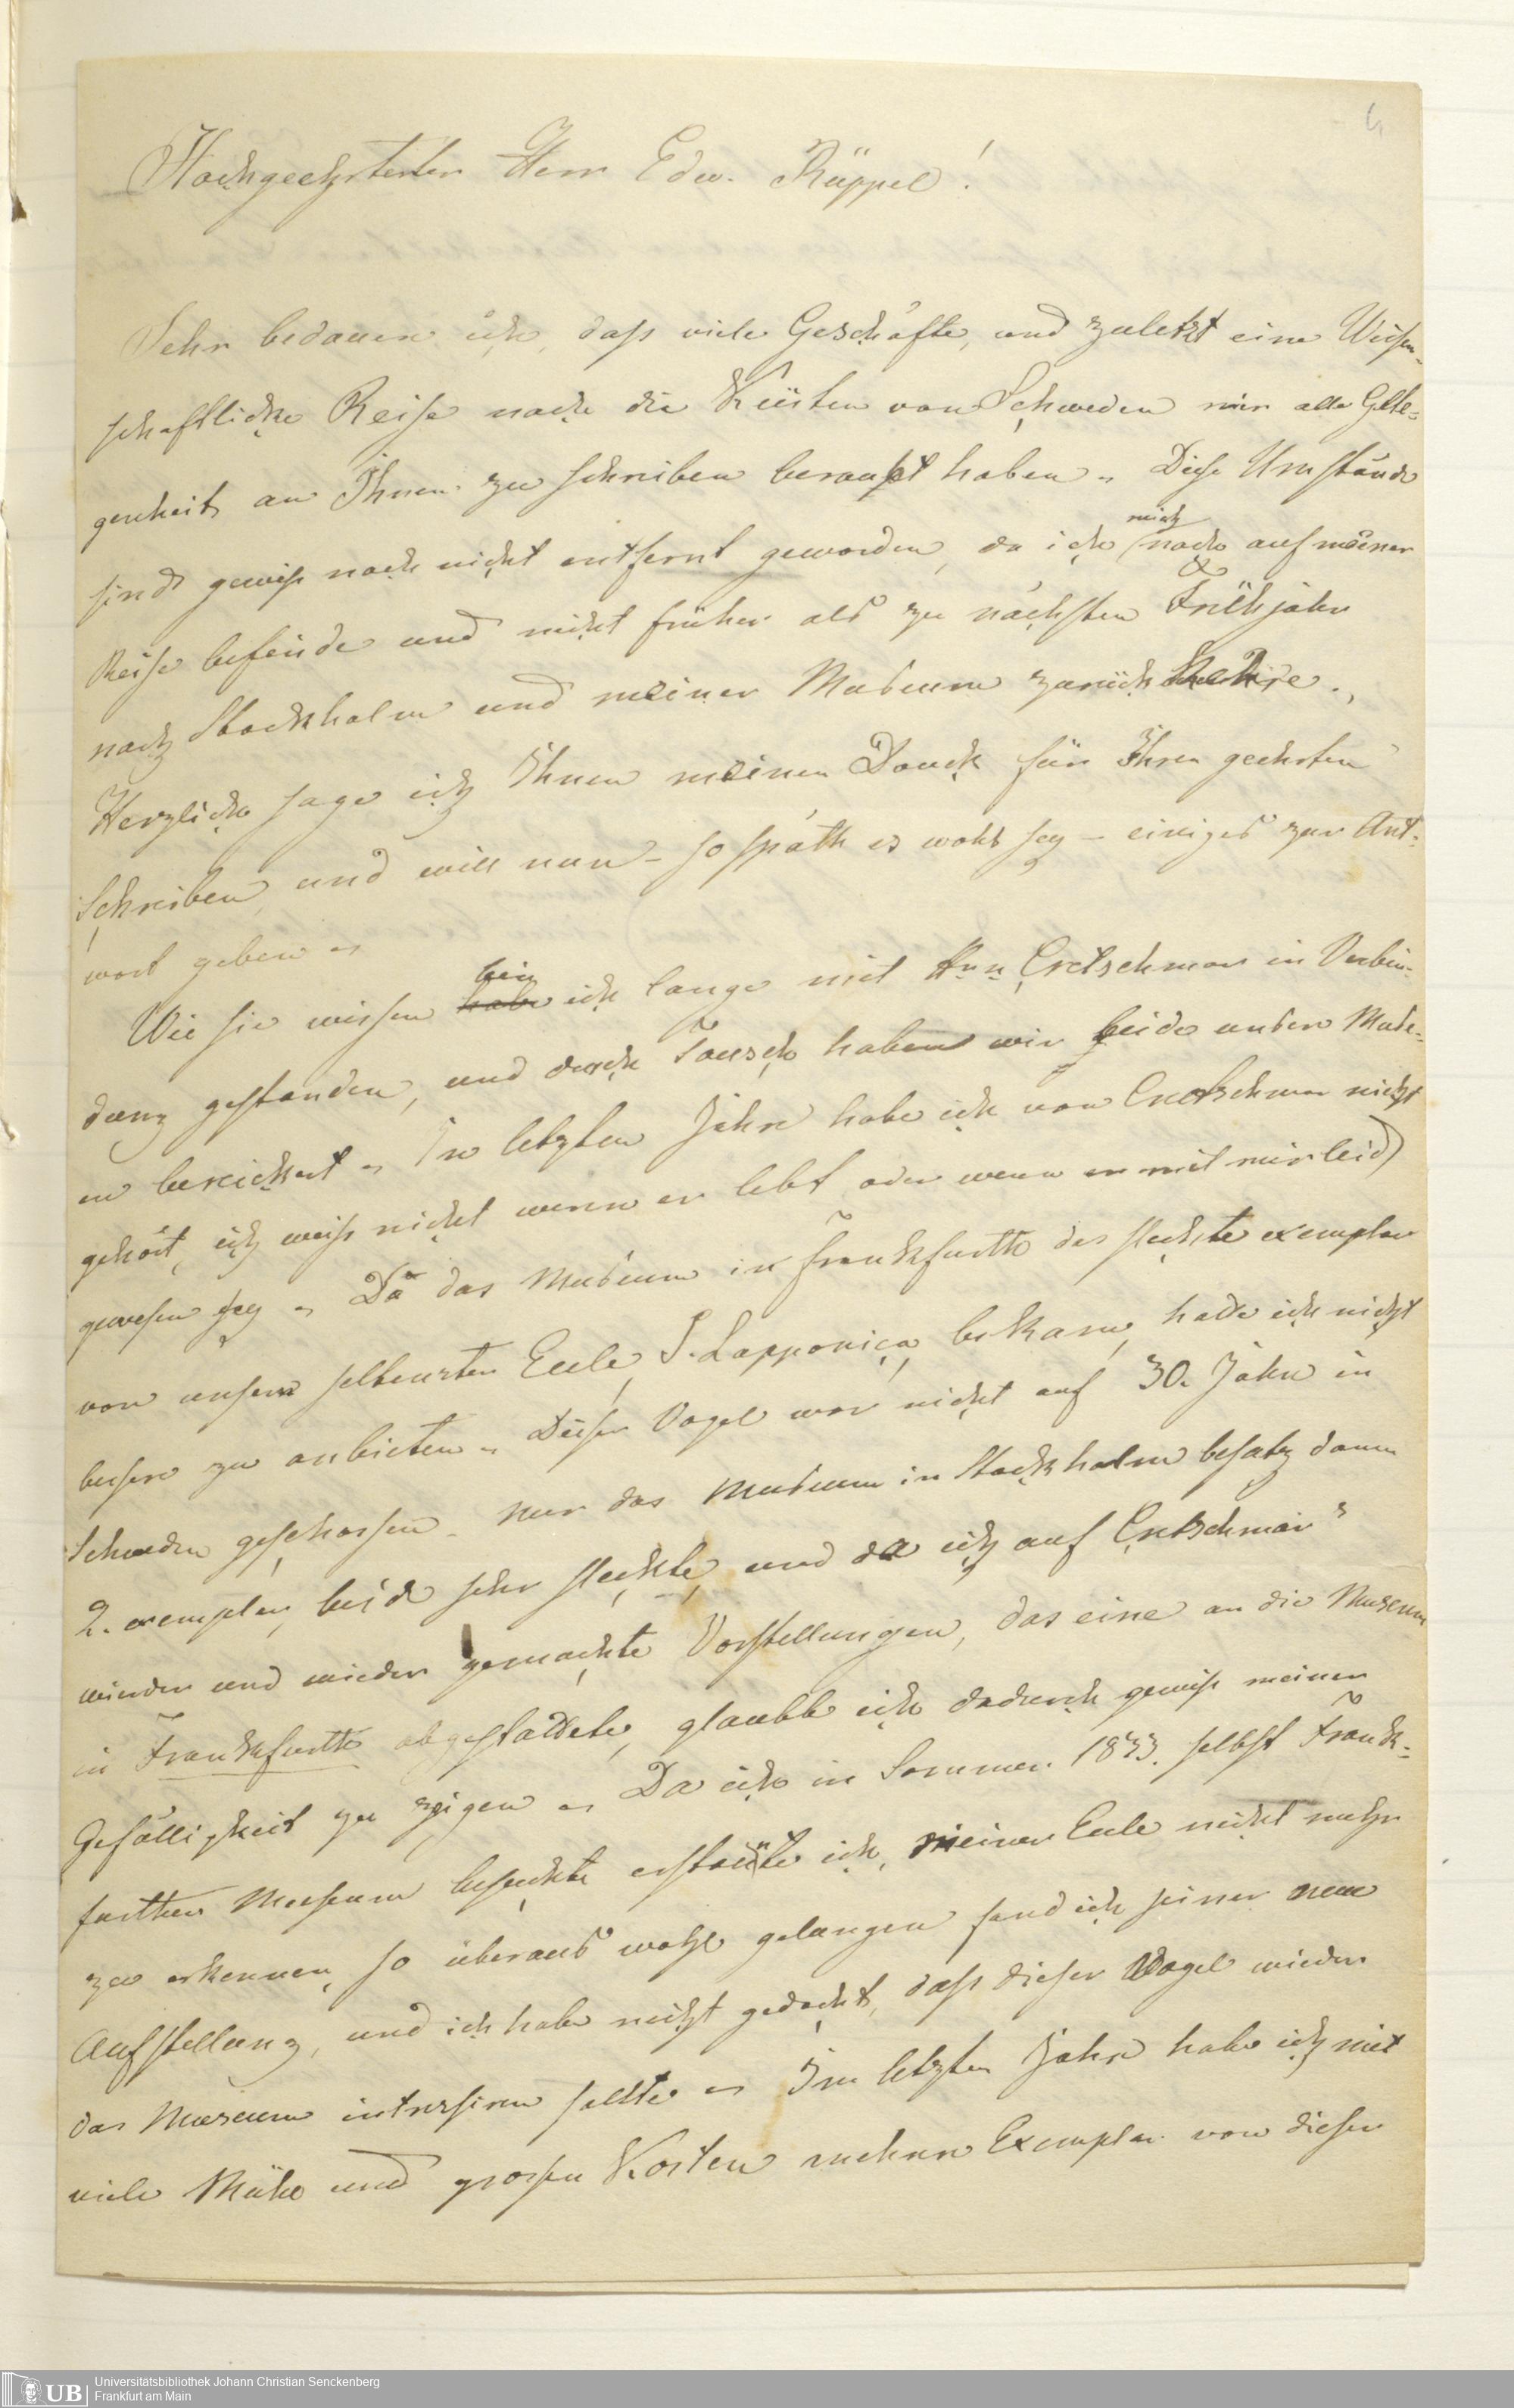 4
Hochgeehrtester Herr Edw. Rüppel!
Sehr bedauere ich, dass viele Geschäfte, und zuletzt eine Wissen-
schaftliche Reise nach die Küsten von Schweden mir alle Gele-
genheit an Ihnen zu schreiben beraubt haben. Diese Umstände
sind gewiss noch nicht entfernt geworden, da ich mich noch auf meiner
Reise befinde und nicht früher als zu nächsten Frühjahr
nach Stockholm und meiner Museum zurück kehre.
Herzliche sage ich Ihnen meinen Danck für Ihren geehrten
Schreiben, und will nun - so späth es wohl sey - einiges zur Ant-
wort geben.
Wie sie wissen habe bin ich lange mit Hrn Cretschmar in Verbin-
dung gestanden, und durch Tausch haben wir beide unsere Muse-
en bereichert. In letzten Jahre habe ich von Cretschmar nicht
gehört, ich weiss nicht wenn er lebt oder wenn er mit mir leid
gewesen sey. Da das Museum in Frankfurth das slechte exemplar
von unsern seltensten Eule, S. Lapponica, bekam, hatte ich nicht
bessere zu anbieten. Dieser Vogel war nicht auf 30. Jahre in
Schweden geschossen. Nur das Museum in Stockholm besatz dann
2. exemplar, beide sehr slechte, und da ich auf Cretschmar's
wieder und wieder gemachte Vorstellungen, das eine an die Museum
in Frankfurth abgestattete, glaubte ich dadurch gewiss meinen
Gefälligkeit zu zeigen. Da ich in Sommer 1833. selbst Franck-
further Museum besuchte erstaunte ich, meiner Eule nicht mehr
zu erkennen, so überaus wohl gelungen fand ich seiner neue
Aufstellung, und ich habe nicht gedacht, dass dieser Vogel wieder
das Museum intressiren sollte. Im letzten Jahre habe ich mit
viele Mühe und grossen Kosten mehrere Exemplar von dieser
UB
Universitätsbibliothek Johann Christian Senckenberg
Frankfurt am Main